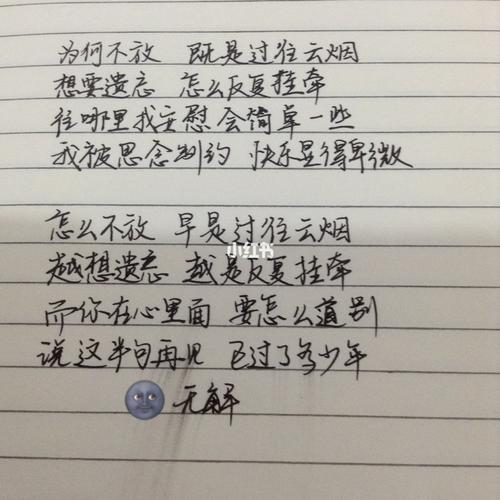 为何不放 既是过往云烟
想要遗忘 怎么反复挂牵
往哪里找安慰会简单一些
我被思念制约 快乐显得卑微
怎么不放 早是过往云烟
小红书
越想遗忘 越是反复挂牵
而你在心里面 要怎么道别
说这半句再见 已过了多少年
无解